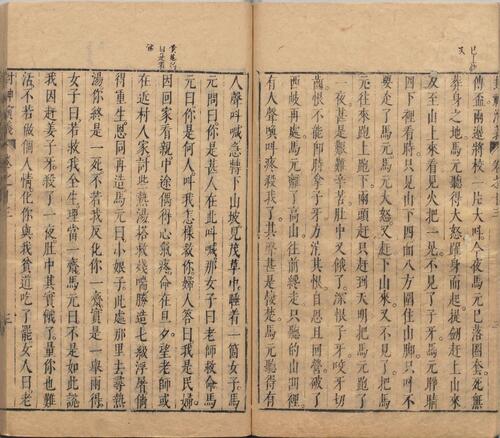 傳盃兩邊將校一片大呼今夜馬元已落圈套死無
葬身之地馬元聽得大怒躍身而起提劍趕上山來
及至山上來看見火把一晃不見了子牙馬元睜睛
四下裡看時只見山下四面八方圍住山脚只呌不
要走了馬元馬元大怒又趕下山來又不見了馬
元往來跑上跑下兩頭趕只趕到天明把馬元跑了
一夜甚是艱難辛苦肚中又餓了深恨子牙咬牙切
齒恨不能卽時拏子牙方消我恨自思且回營破了
西岐再處馬元離了高山往前纔走只聽的山凹裡
有人聲喚呌疼殺我了其聲甚是悽楚馬元聽得有
人聲呌喊急轉下山坡見茂草中睡着一箇女子馬
元問曰你是甚人在此呌喊那女子曰老師救命馬
元曰你是何人呌我怎樣救你婦人荅曰我是民婦
因回家看親中途偶得心氣疼命在旦夕望老師或
在近村人家討些熱湯搭救殘喘勝造七級浮屠倘
得重生恩同再造馬元曰小娘子此處那里去尋熱
湯你終是一死不若我反化你一齋實是一舉兩得
女子曰若救我全生理當一齋馬元曰不是如此說
我因趕姜子牙殺了一夜肚中其實餓了量你也難
活不若做個人情化你與我貧道吃了罷女人曰老
封神演義
卷之十三
三